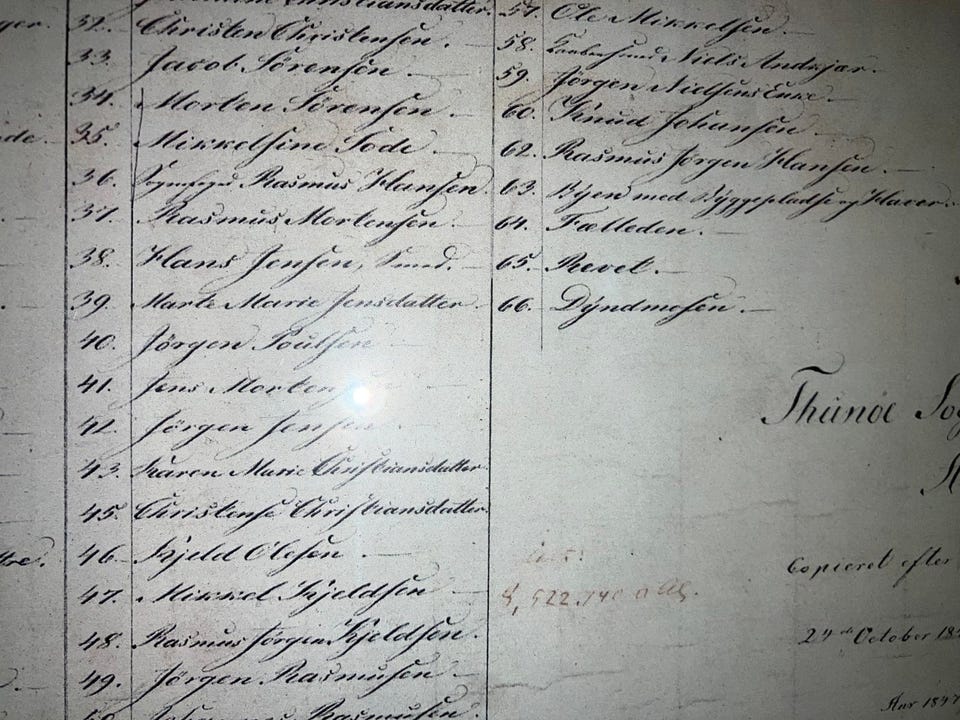 ger.
de
32. Christen Christensen.
33. Jacob Sörensen.
34. Morten Sörensen
35. Mikkelsine Tode
36. Rasmus Hansen
37. Rasmus Mortensen.
38. Hans Jensen, Smed.
39. Marte Marie Jensdatter.
40. Jörgen Poulsen
41. Jens Morten
42. Jörgen Jensen
43. Karen Marie Christiansdatter
45. Christense Christiansdatter.
46. Kjeld Olesen.
47. Mikkel Kjeldsen
48. Rasmus Jörgen Kjeldsen.
49. Jörgen Rasmusen.
50. Rasmusen.
57. Ole Mikkelsen.
58. Niels Andkjær.
59. Jörgen Nielsens Enke.
60. Knud Johansen
62. Rasmus Jörgen Hansen.
63. Byen med Byggepladse og Haver.
64. Fælleden.
65. Revel.
66. Dyndmosen.
522.740 □ Al.
Thunöe Sog
Copieret efter
24de October 18
Aar 1847